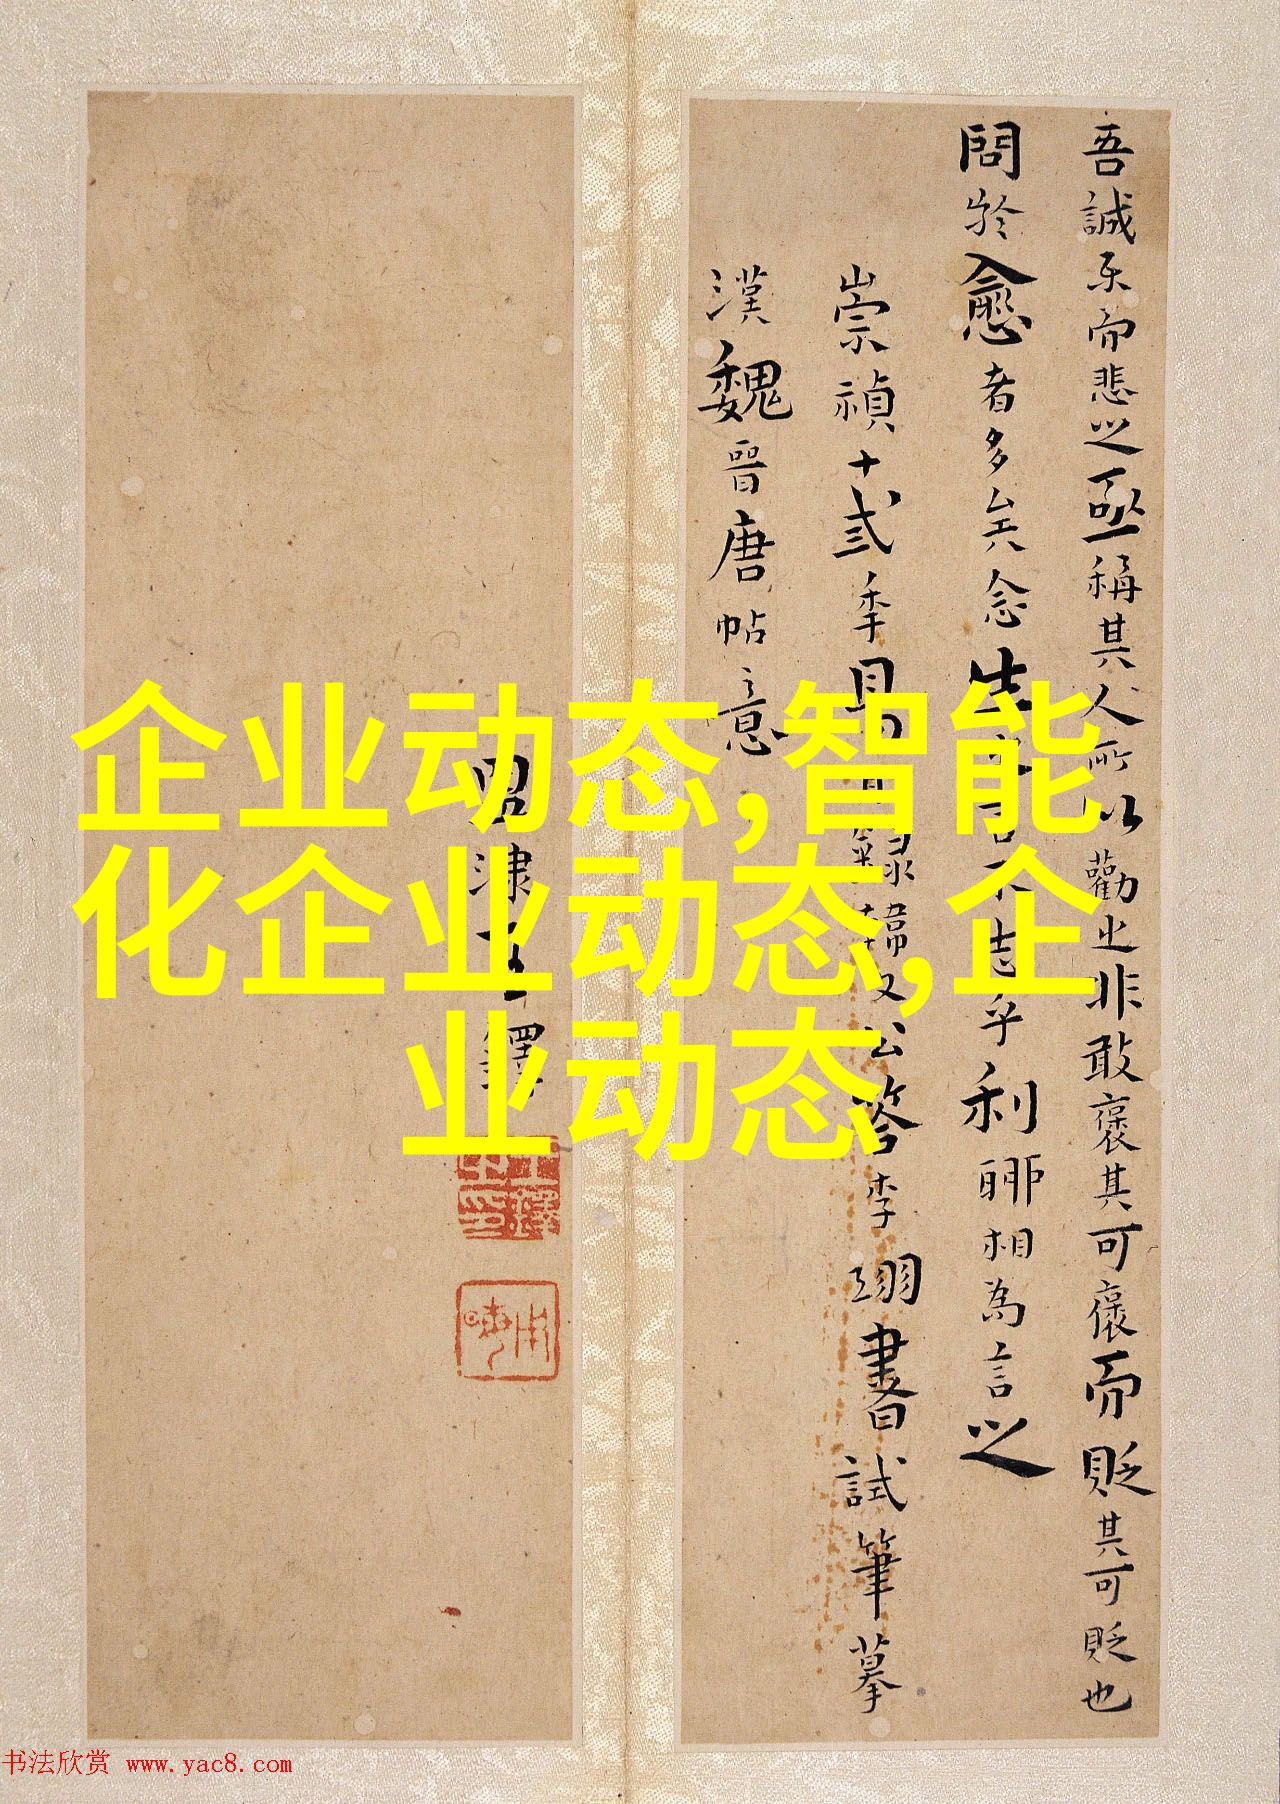 吾誠樂而悲之亟稱其人所以勸之非敢褒其可褒而貶其可貶也
問於愈者多矣念生之言不志乎利聊相為言之
崇禎十貳季
錄韓文公答李翊書試筆摹
漢魏晉唐帖意
王鐸
企业动态,智能
化企业动态,企
业动态
书法欣赏 www.yac8.com